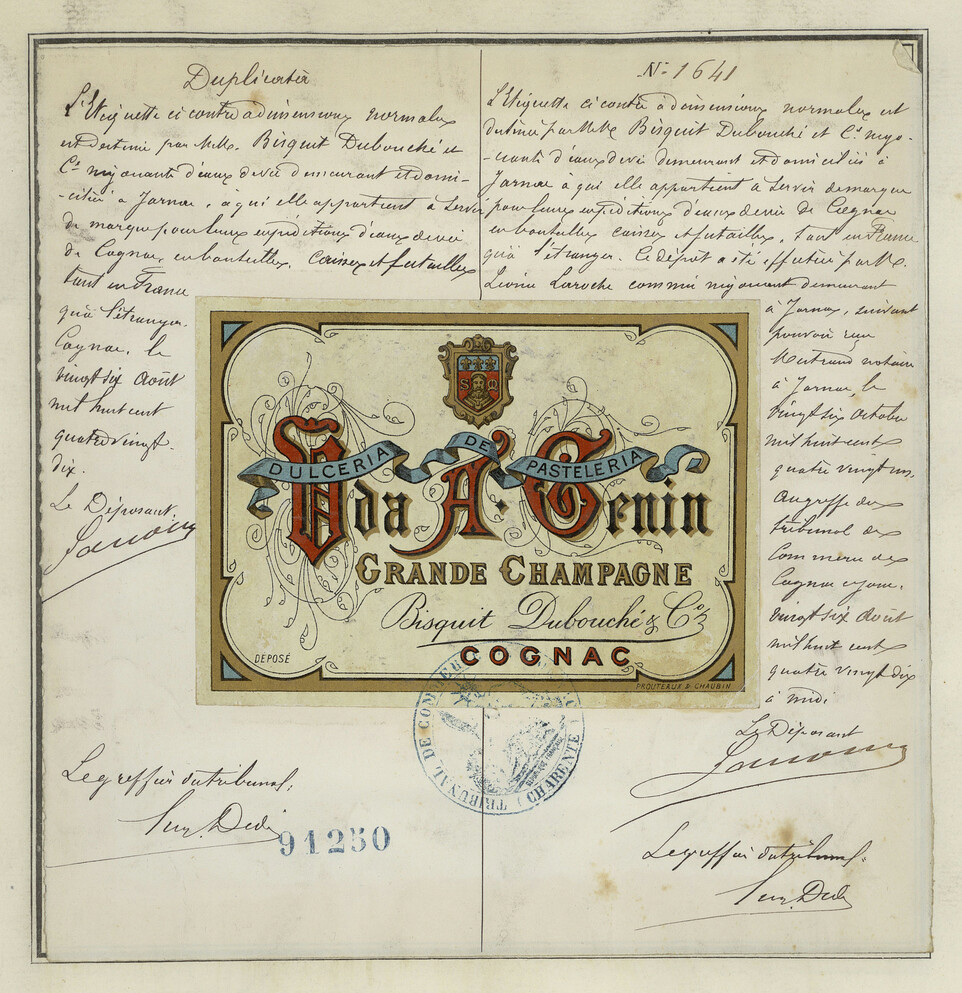 Duplicata
L'Etiquette ci contre à dimensions normales
est destinée par MM. Bisquit Dubouché et
Cie négociants d'eaux de vie demeurant et domi-
-ciliés à Jarnac, à qui elle appartient à servir
de marque pour leurs expéditions d'eaux de vie
de Cognac, en bouteilles, caisses et futailles
tant en France
qu'à l'étranger.
Cognac, le
vingt six Août
mil huit cent
quatre vingt
dix.
Le Déposant
Le greffier du tribunal,
91250
No 1641
L'Etiquette ci contre à dimensions normales est
destinée par MM. Bisquit Dubouché et Cie négo-
-ciants d'eaux de vie demeurant et domiciliés à
Jarnac à qui elle appartient à servir de marque
pour leurs expéditions d'eaux de vie de Cognac
en bouteilles caisses et futailles, tant en France
qu'à l'étranger. Ce dépôt a été effectué par M.
Laroche commis négociant demeurant
à Jarnac, suivant
pouvoir reçu
Bertrand notaire
à Jarnac, le
vingt six Octobre
mil huit cent
quatre vingt un,
au greffe du
tribunal de
Commerce de
Cognac ce jour,
vingt six Août
mil huit cent
quatre vingt dix
à midi
Le Déposant
Le greffier du tribunal,
S O
DULCERIA DE PASTELERIA
Vda A. Genin
GRANDE CHAMPAGNE
Bisquit Dubouché & Co
COGNAC
DÉPOSÉ
PROUTEAUX & CHAUBIN
TRIBUNAL DE COMMERCE
(CHARENTE)